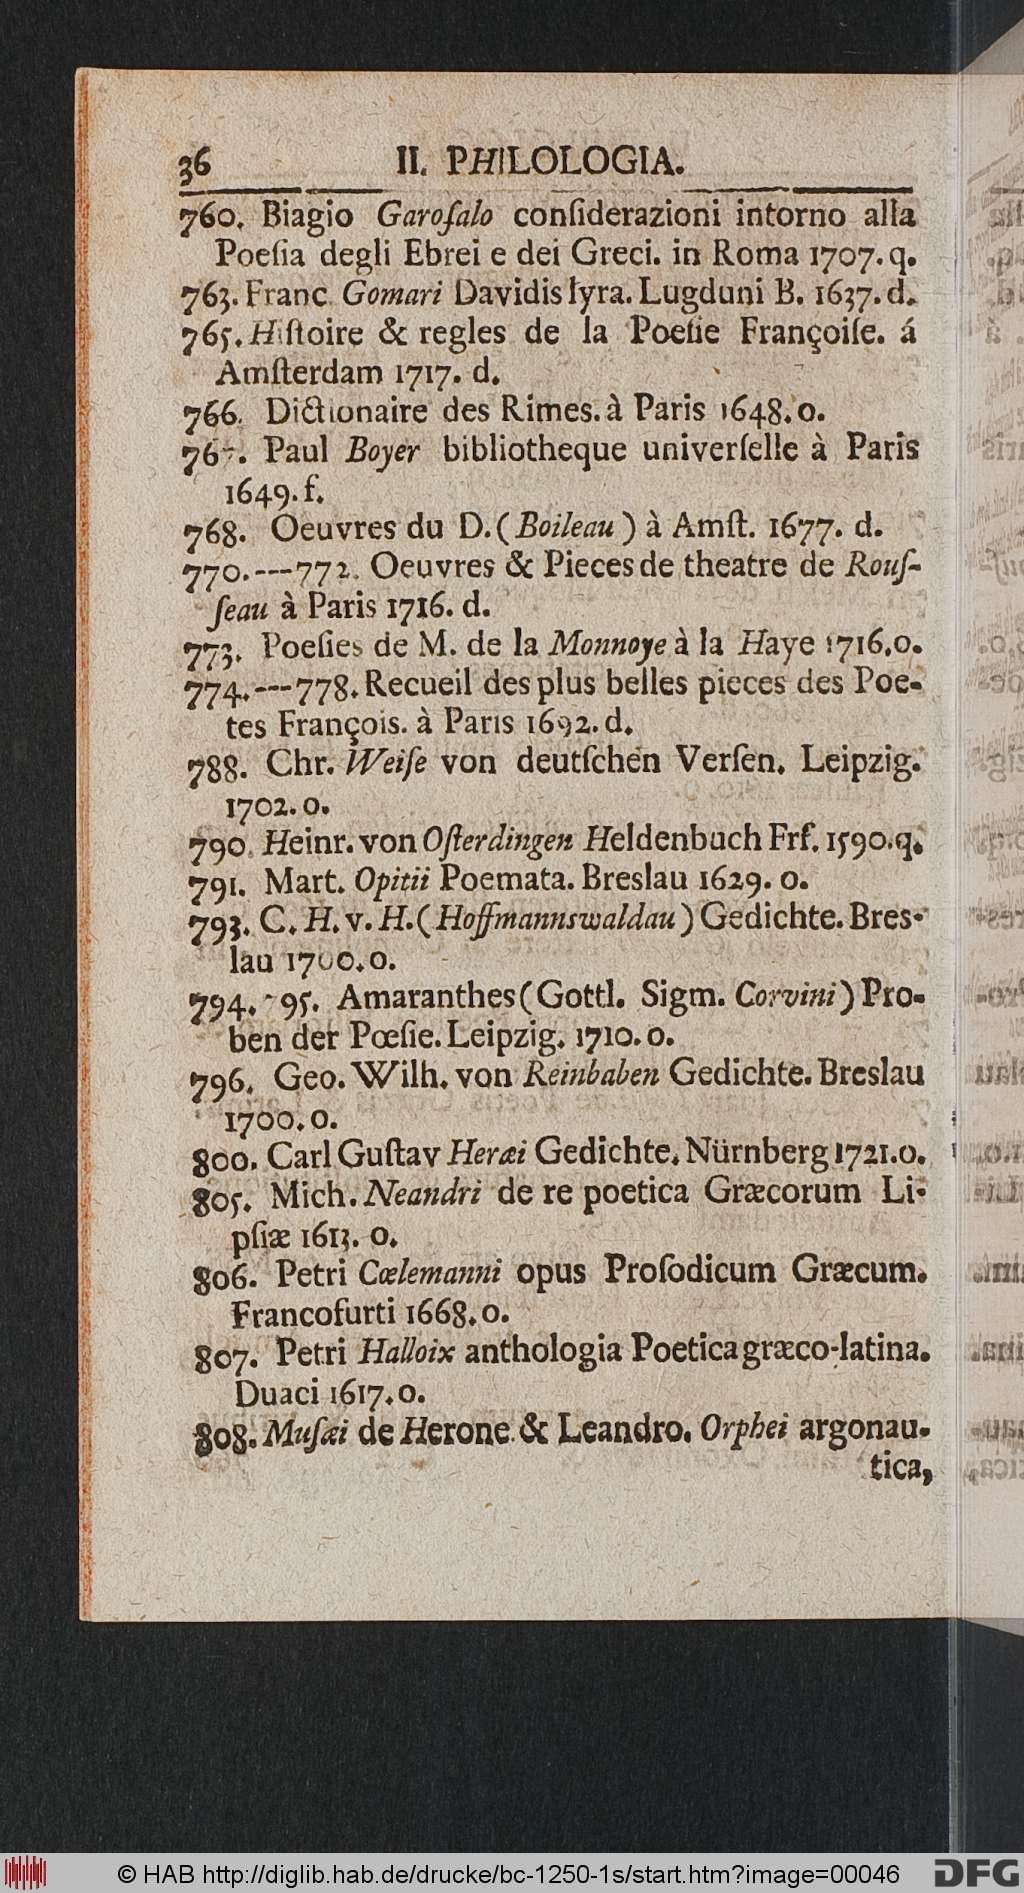 36 II. PHILOLOGIA.
760. Biagio Garoſalo conſiderazioni intorno alla
Poeſia degli Ebrei e dei Greci. in Roma 1707. q.
763. Franc. Gomari Davidis lyra. Lugduni B. 1637. d.
765. Hiſtoire & regles de la Poeſie Françoiſe. á
Amſterdam 1717. d.
766. Dictionaire des Rimes. à Paris 1648. o.
767. Paul Boyer bibliotheque univerſelle à Paris
1649. f.
768. Oeuvres du D. (Boileau) à Amſt. 1677. d.
770.---772. Oeuvres & Pieces de theatre de Rouſ-
ſeau à Paris 1716. d.
773. Poeſies de M. de la Monnoye à la Haye 1716. o.
774.---778. Recueil des plus belles pieces des Poe-
tes François. à Paris 1692. d.
788. Chr. Weiſe von deutſchen Verſen. Leipzig.
1702. o.
790. Heinr. von Oſterdingen Heldenbuch Frf. 1590. q.
791. Mart. Opitii Poemata. Breslau 1629. o.
793. C. H. v. H. (Hoffmannswaldau) Gedichte. Bres-
lau 1700. o.
794. 795. Amaranthes (Gottl. Sigm. Corvini) Pro-
ben der Pœſie. Leipzig. 1710. o.
796. Geo. Wilh. von Reinbaben Gedichte. Breslau
1700. o.
800. Carl Guſtav Heræi Gedichte. Nürnberg 1721. o.
805. Mich. Neandri de re poetica Græcorum Li-
pſiæ 1613. o.
806. Petri Cœlemanni opus Proſodicum Græcum.
Francofurti 1668. o.
807. Petri Halloix anthologia Poetica græco-latina.
Duaci 1617. o.
808. Muſæi de Herone & Leandro. Orphei argonau-
tica,
© HAB http://diglib.hab.de/drucke/bc-1250-1s/start.htm?image=00046
DFG